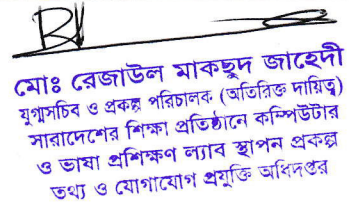 মোঃ রেজাউল মাকছুদ জাহেদী
যুগ্মসচিব ও প্রকল্প পরিচালক (অতিরিক্ত দায়িত্ব)
সারাদেশের শিক্ষা প্রতিষ্ঠানে কম্পিউটার
ও ভাষা প্রশিক্ষণ ল্যাব স্থাপন প্রকল্প
তথ্য ও যোগাযোগ প্রযুক্তি অধিদপ্তর